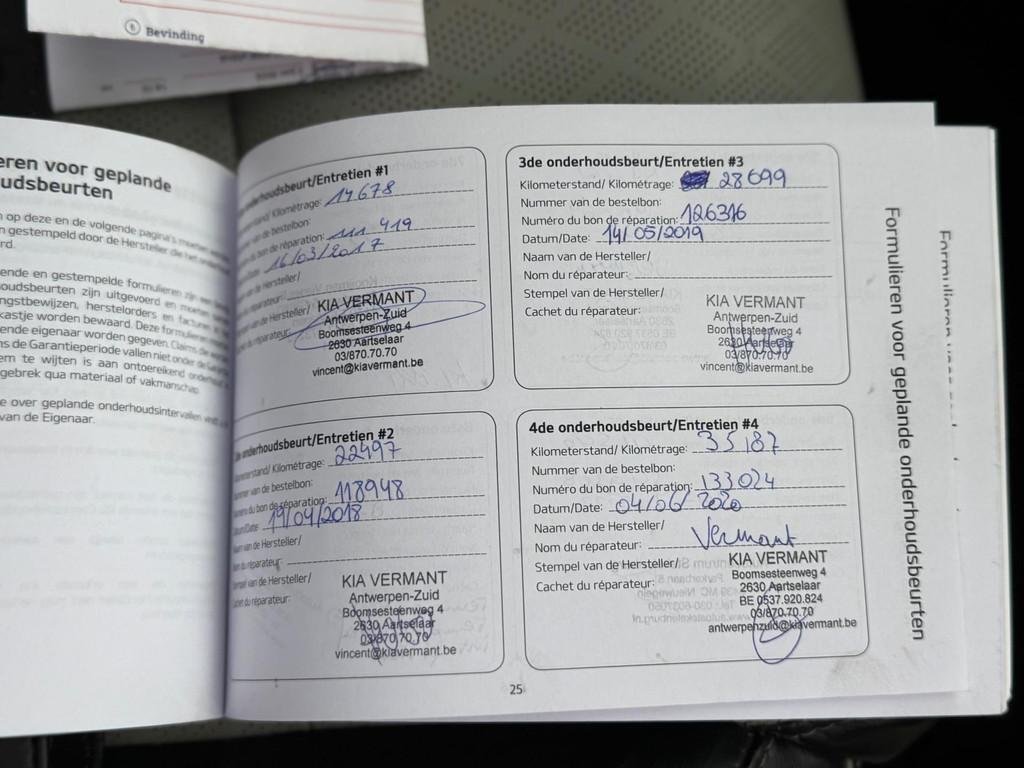 Bevinding
eren voor geplande
udsbeurten
op deze en de volgende pagina's moeten
gestempeld door de Hersteller die het
rd.
ende en gestempelde formulieren zijn een
oudsbeurten zijn uitgevoerd en moeten
ngstbewijzen, herstelorders en facturen in het
kastje worden bewaard. Deze formulieren
ende eigenaar worden gegeven. Claims
s de Garantieperiode vallen niet onder de
em te wijten is aan ontoereikend onderhoud
gebrek qua materiaal of vakmanschap.
e over geplande onderhoudsintervallen
van de Eigenaar.
onderhoudsbeurt/Entretien #1
Kilométrage: 14678
van de bestelbon:
de réparation: 111 419
16/03/2017
de Hersteller/
réparateur:
van de Hersteller/
réparateur:
KIA VERMANT
Antwerpen-Zuid
Boomsesteenweg 4
2630 Aartselaar
03/870.70.70
vincent@kiavermant.be
onderhoudsbeurt/Entretien #2
Kilometerstand/ Kilométrage: 22497
Nummer van de bestelbon:
Numéro du bon de réparation: 118948
Datum/Date: 19/04/2018
Naam van de Hersteller/
Nom du réparateur:
Stempel van de Hersteller/
Cachet du réparateur:
KIA VERMANT
Antwerpen-Zuid
Boomsesteenweg 4
2630 Aartselaar
03/870.70.70
vincent@kiavermant.be
3de onderhoudsbeurt/Entretien #3
Kilometerstand/ Kilométrage: 28699
Nummer van de bestelbon:
Numéro du bon de réparation: 126316
Datum/Date: 14/05/2019
Naam van de Hersteller/
Nom du réparateur:
Stempel van de Hersteller/
Cachet du réparateur:
KIA VERMANT
Antwerpen-Zuid
Boomsesteenweg 4
2630 Aartselaar
03/870.70.70
vincent@kiavermant.be
4de onderhoudsbeurt/Entretien #4
Kilometerstand/ Kilométrage: 35187
Nummer van de bestelbon:
Numéro du bon de réparation: 133024
Datum/Date: 04/06/2020
Naam van de Hersteller/
Nom du réparateur: Vermant
Stempel van de Hersteller/
Cachet du réparateur:
KIA VERMANT
Boomsesteenweg 4
2630 Aartselaar
BE 0537.920.824
03/870.70.70
antwerpenzuid@kiavermant.be
25
Formulieren voor geplande onderhoudsbeurten